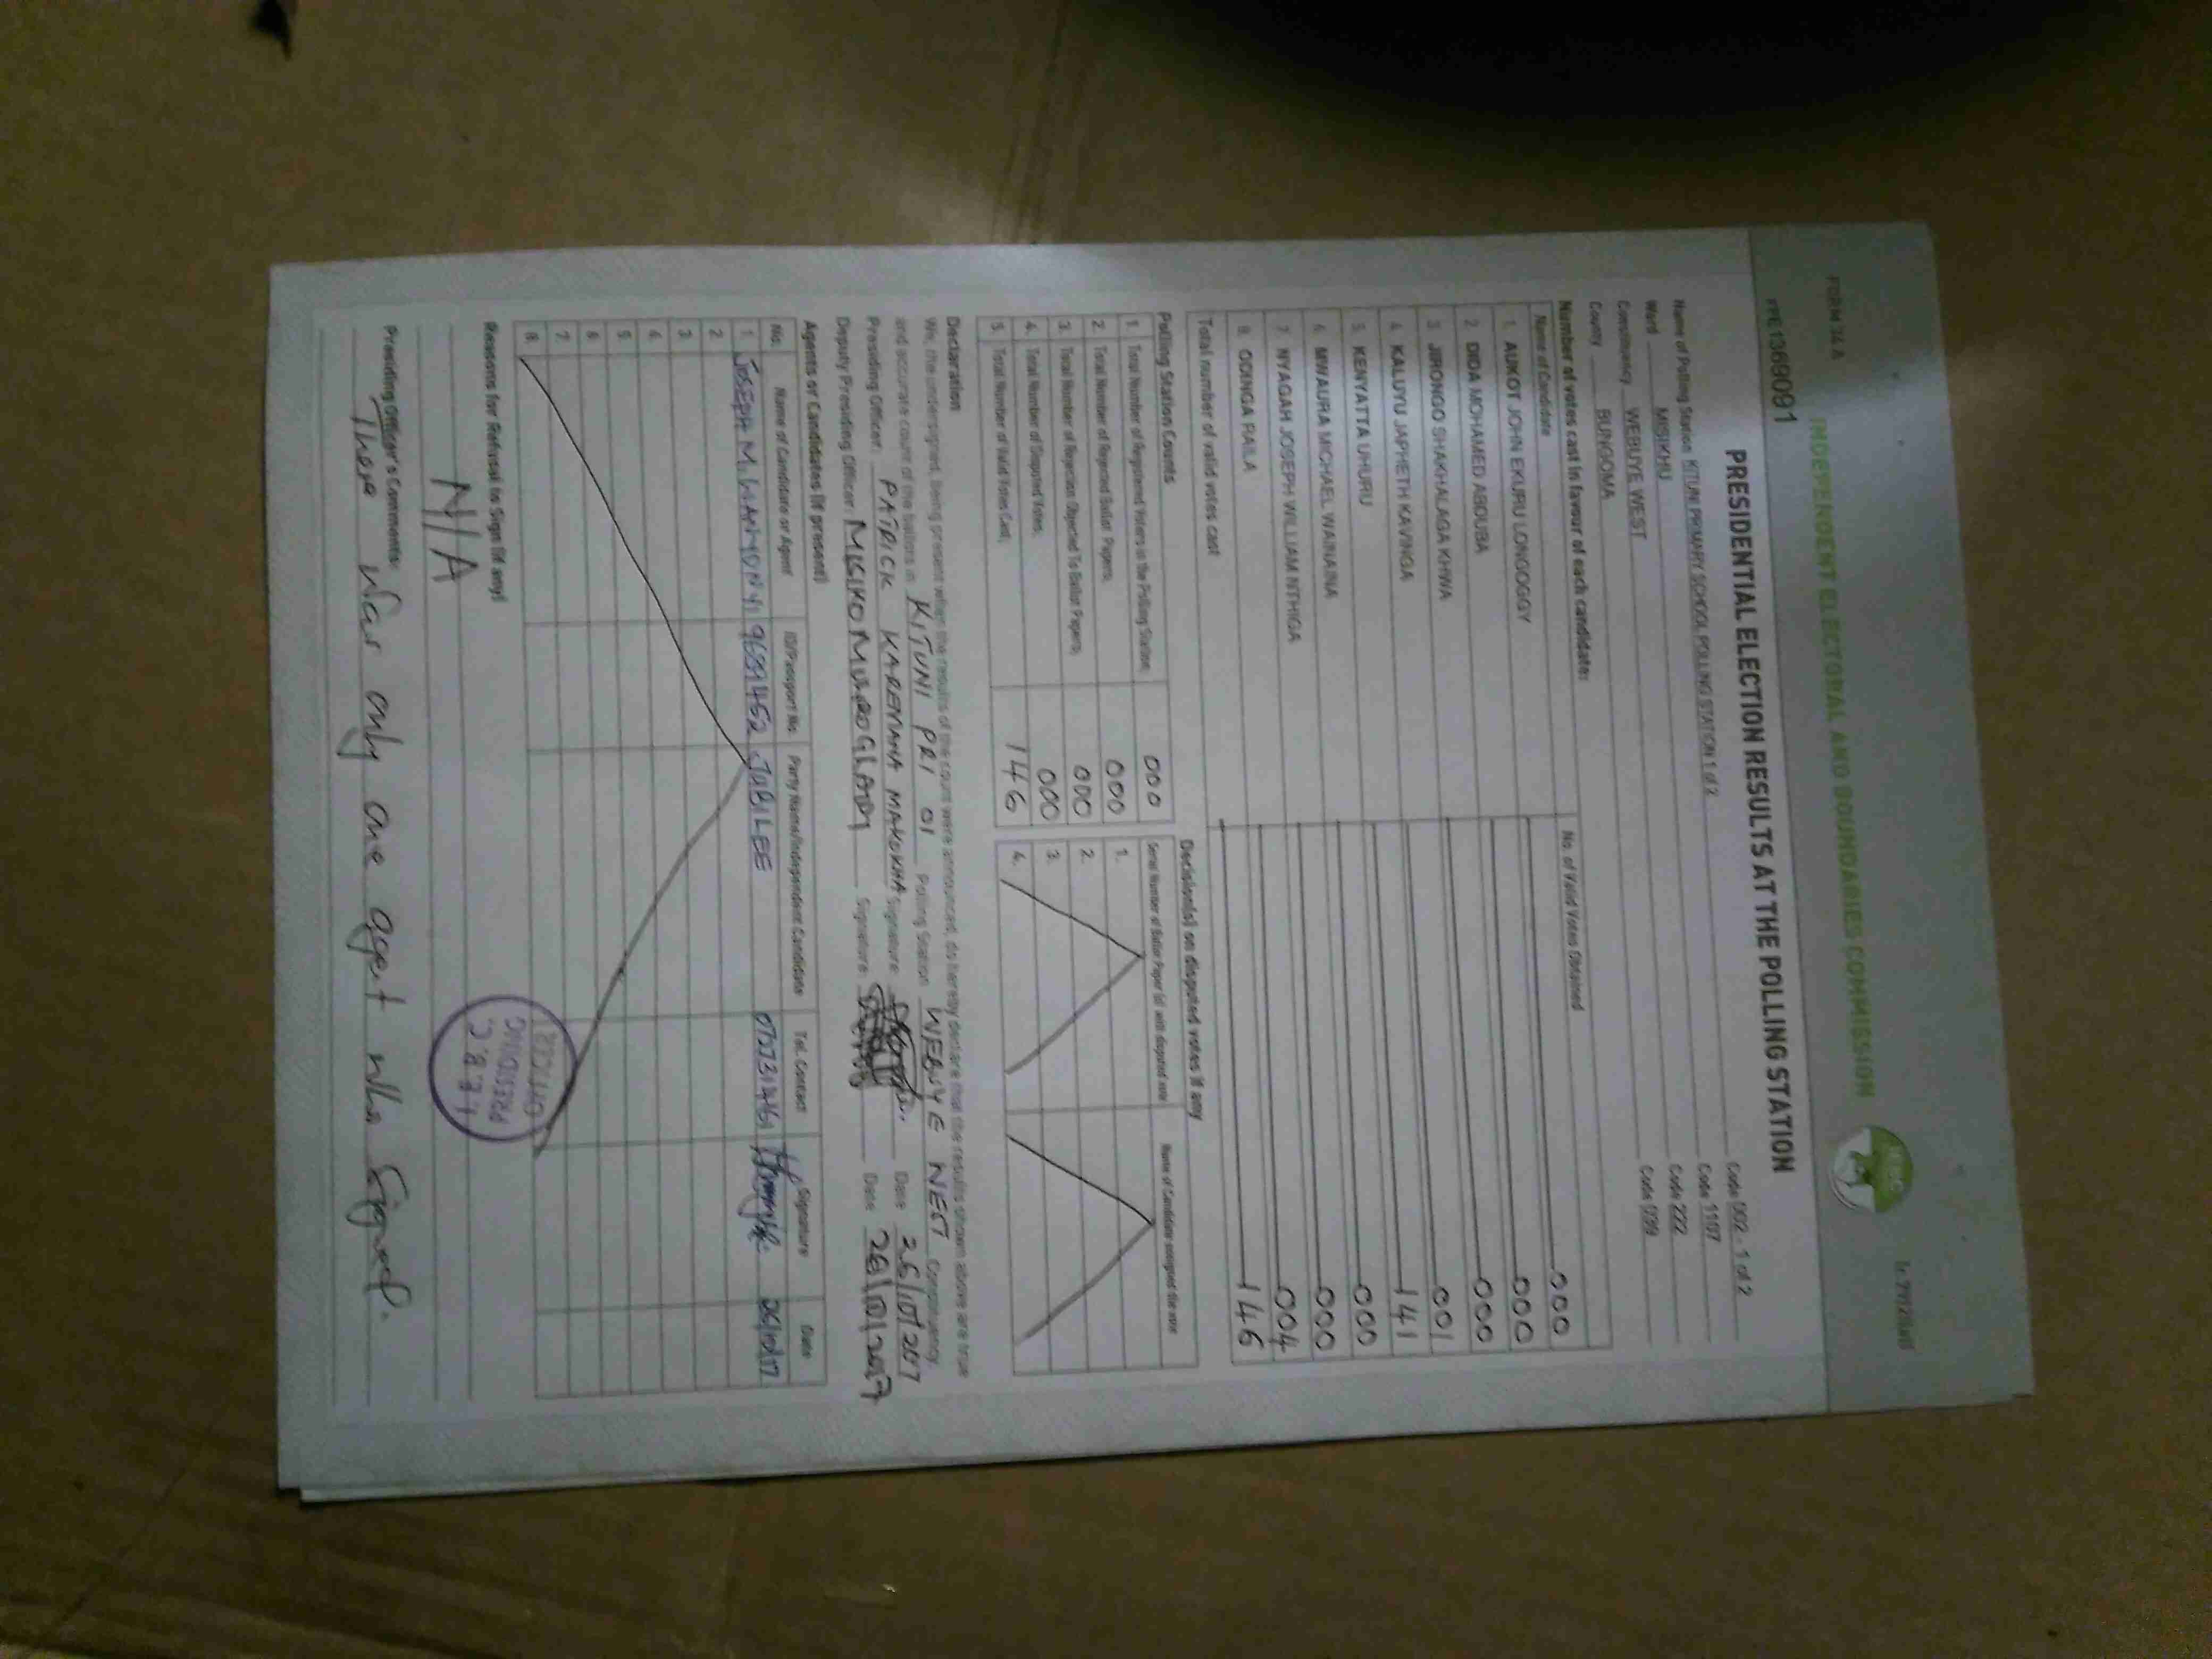 FORM 34 A
INDEPENDENT ELECTORAL AND BOUNDARIES COMMISSION
IEBC
PRESIDENTIAL ELECTION RESULTS AT THE POLLING STATION
Name of Polling Station KITUNI PRIMARY SCHOOL POLLING STATION 1 of 2 Code 002 - 1 of 2
Ward MISIKHU Code 1107
Constituency WEBUYE WEST Code 222
County BUNGOMA Code 039
Number of votes cast in favour of each candidate:
Name of Candidate No. of Valid Votes Obtained
1. AUKOT JOHN EKURU LONGOGGY 000
2. DIDA MOHAMED ABDUBA 000
3. JIRONGO SHAKHALAGA KHWA 000
4. KALUYU JAPHETH KAVINGA 001
5. KENYATTA UHURU 141
6. MWAURA MICHAEL WAINAINA 000
7. NYAGAH JOSEPH WILLIAM NTHIGA 000
8. ODINGA RAILA 004
Total number of valid votes cast 146
Polling Station Counts Decision(s) on disputed votes if any
1. Total Number of Registered Voters in the Polling Station; 000
2. Total Number of Rejected Ballot Papers; 000
3. Total Number of Rejection Objected To Ballot Papers; 000
4. Total Number of Disputed Votes; 000
5. Total Number of Valid Votes Cast; 146
Serial Number of Ballot Paper (s) with disputed vote Name of Candidate assigned the vote
1.
2.
3.
4.
Declaration
We, the undersigned, being present when the results of the count were announced, do hereby declare that the results shown above are true
and accurate count of the ballots in KITUNI PRI 01 Polling Station WEBUYE WEST Constituency
Presiding Officer: PATRICK MAKOKHA Signature: Date 26/10/2017
Deputy Presiding Officer: Signature: Date 26/10/2017
Agents or Candidates (if present)
No. Name of Candidate or Agent ID/Passport No. Party Name/Independent Candidate Tel. Contact Signature Date
1. JOSEPH JUBILEE 26/10/17
2
3
4
5
6
7
8
Reasons for Refusal to Sign (if any)
N/A
I.E.B.C.
PRESIDING
OFFICER
Presiding Officer's Comments:
There war only one agent who signed.